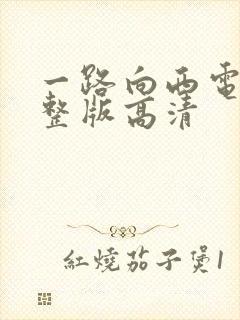 一路向西电
整版高清
红烧茄子煲1